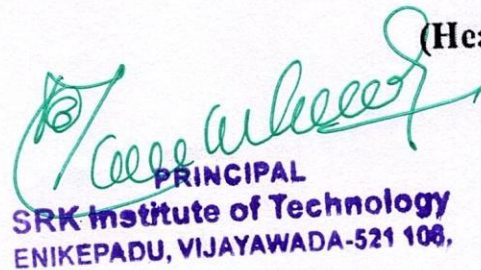 (He
PRINCIPAL
SRK Institute of Technology
ENIKEPADU, VIJAYAWADA-521 108,